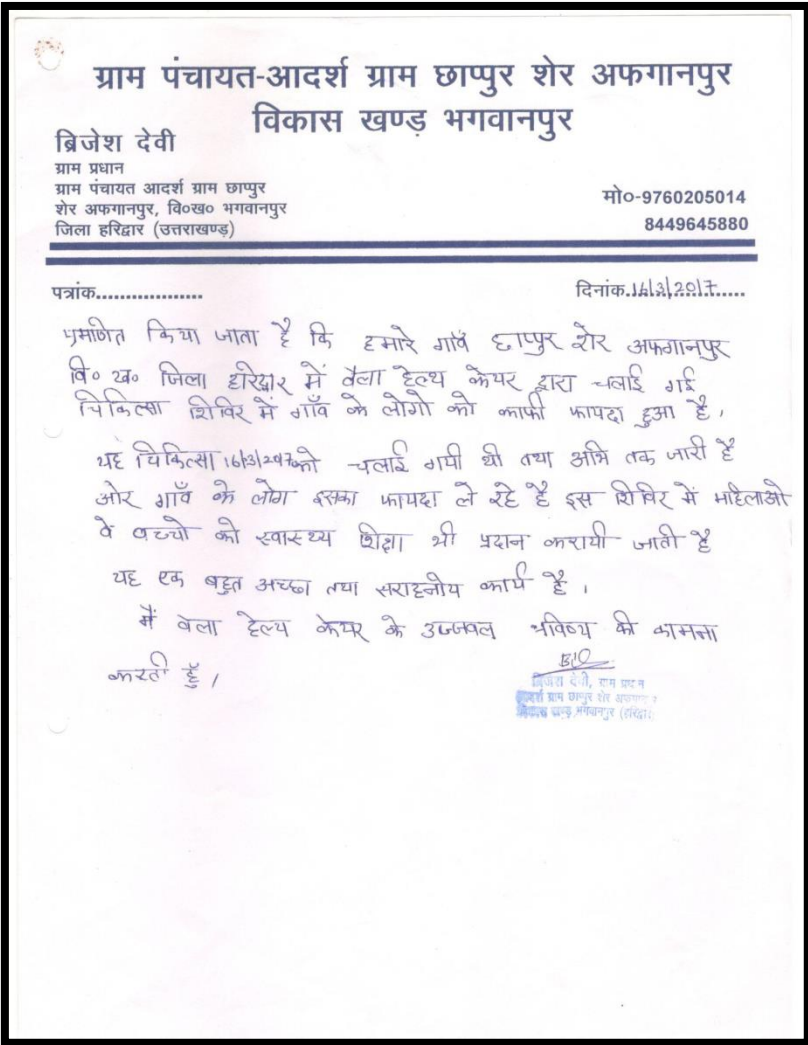 ग्राम पंचायत-आदर्श ग्राम छाप्पुर शेर अफगानपुर
विकास खण्ड़ भगवानपुर
ब्रिजेश देवी
ग्राम प्रधान
ग्राम पंचायत आदर्श ग्राम छाप्पुर
शेर अफगानपुर, वि०ख० भगवानपुर
जिला हरिद्वार (उत्तराखण्ड़)
मो०-9760205014
8449645880
पत्रांक..................
दिनांक.16|3|2017.....
प्रमाणित किया जाता है कि हमारे गाँव छाप्पुर शेर अफगानपुर
वि० ख० जिला हरिद्वार में वैला हेल्थ केयर द्वारा चलाई गई
चिकित्सा शिविर में गाँव के लोगो को काफी फायदा हुआ है,
यह चिकित्सा को चलाई गयी थी तथा अभि तक जारी है
ओर गाँव के लोग इसका फायदा ले रहे है इस शिविर में महिलाओ
वे बच्चो को स्वास्थ्य शिक्षा भी प्रदान करायी जाती है
यह एक बहुत अच्छा तथा सराहनीय कार्य है ,
मैं वेला हेल्थ केयर के उज्जवल भविष्य की कामना
करती हुँ ,
ब्रिजेश देवी, ग्राम प्रधान
आदर्श ग्राम छाप्पुर शेर
विकास खण्ड़ भगवानपुर (हरिद्वार)